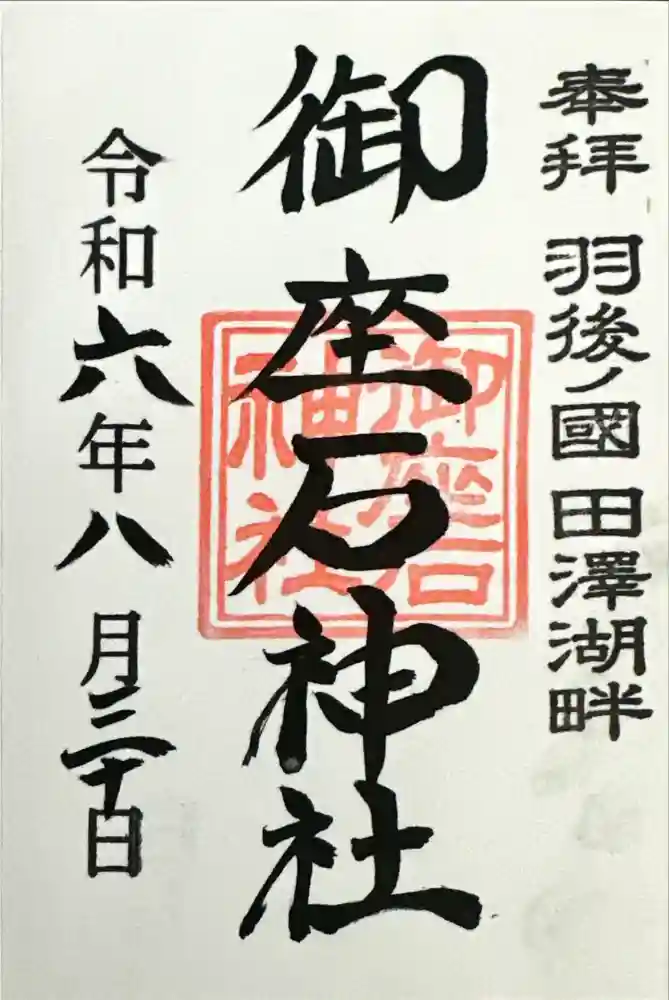 奉拝 羽後ノ國 田澤湖畔
御座石神社
御座石
神社
令和六年八月三十日